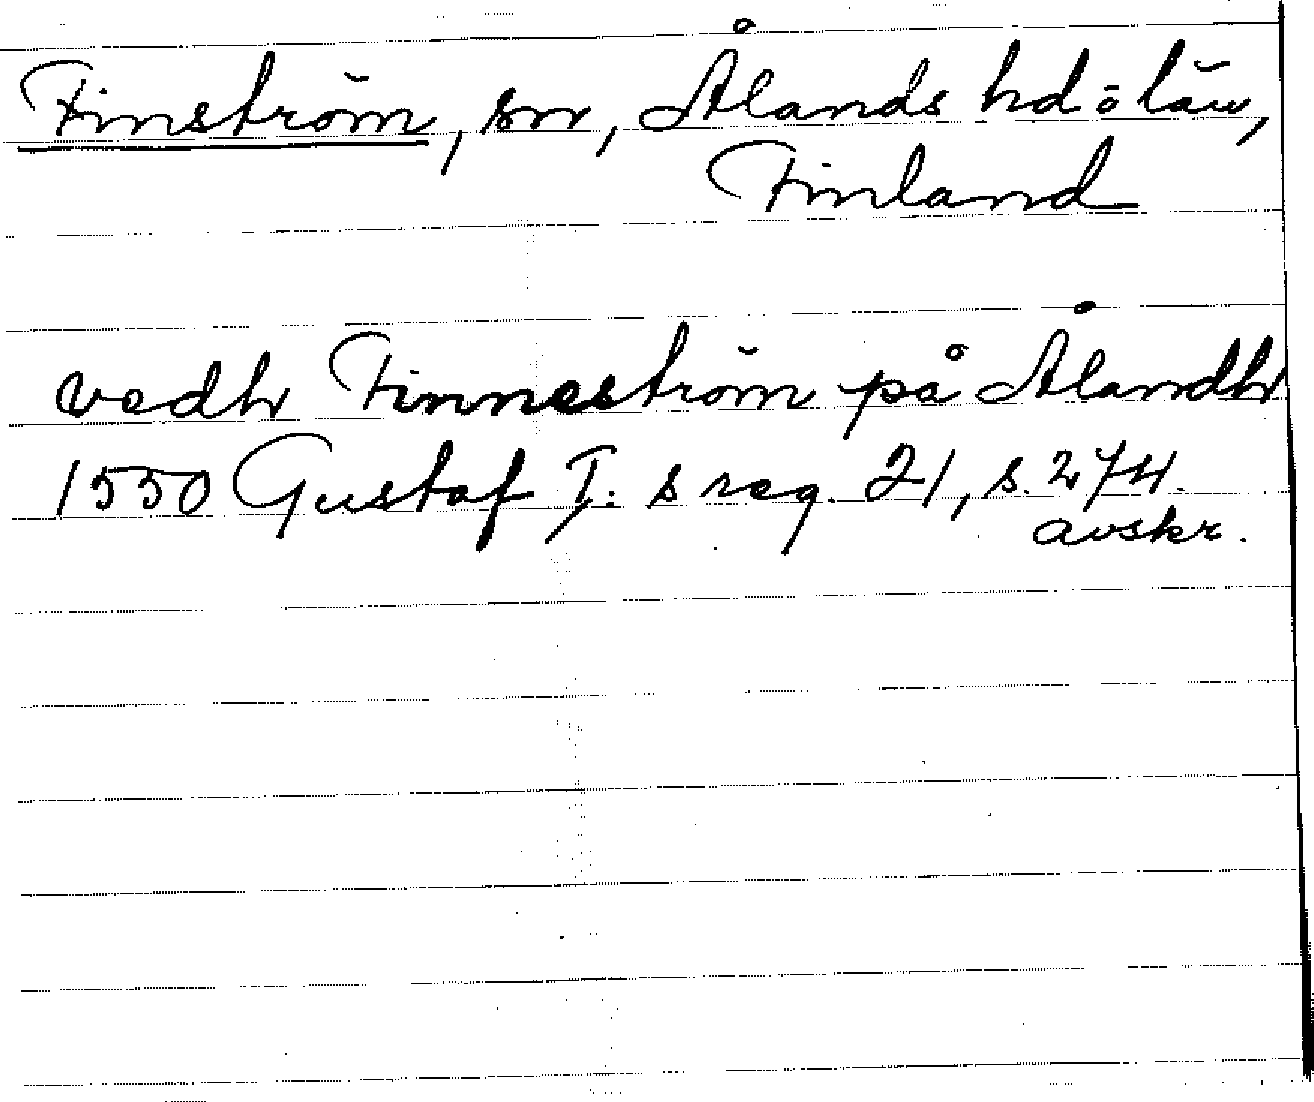 Finström, sn, Ålands hd o län,
Finland
vedh Finneström på Ålandh
1550 Gustaf I:s reg. 21, s. 274.
avskr.